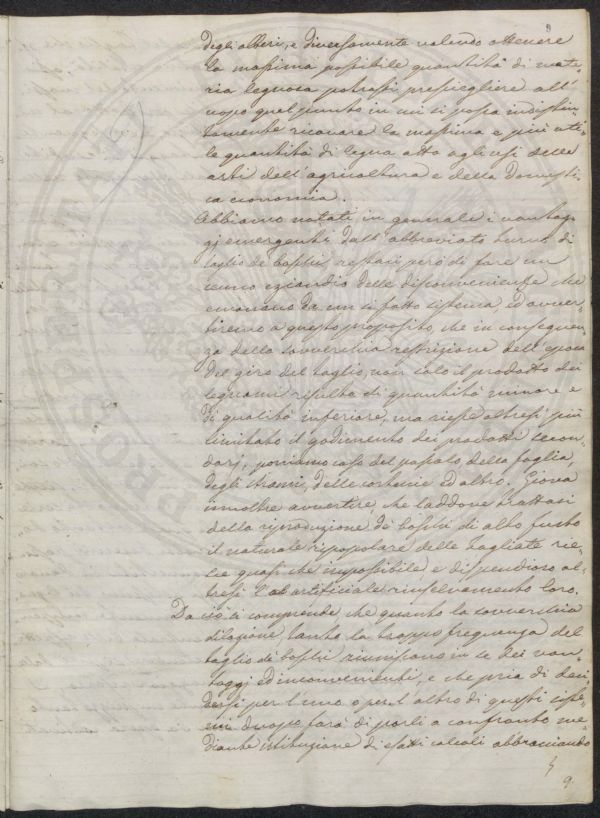 degli alberi, e diversamente volendo ottenere
la massima possibile quantità di mate-
ria legnosa potrassi prescegliere all'
uopo quel punto in cui si possa indistin-
tamente ricavare la massima e più uti-
le quantità di legna atto agli usi delle
arti dell'agricoltura e della domesti-
ca economia.
Abbiamo notati in generale i vantag-
gj emergenti dall'abbreviato turno di
taglio de' boschi, restaci però di fare un
cenno eziandio delle disconvenienze che
emanano da un sifatto sistema, ed avver-
tiremo a questo proposito, che in conseguen-
za della soverchia restrizione dell'epoca
del giro del taglio, non solo il prodotto dei
legnami risulta di quantità minore e
di qualità inferiore, ma riesce altresì più
limitato il godimento dei prodotti secon-
darj, poniamo caso del pascolo della foglia,
degli strami, delle corteccie ed altro. Giova
inoltre avvertire, che laddove trattasi
della riproduzione di boschi di alto fusto
il naturale ripopolare delle tagliate rie-
sce quasi che impossibile e dispendioso al-
tresì l'artificiale rinselvamento loro.
Da ciò si comprende che quanto la soverchia
dilazione, tanto la troppo frequenza del
taglio di boschi riuniscono in se dei van-
taggi ed inconvenienti, e che pria di deci-
dersi per l'uno o per l'altro di questi siste-
mi d'uopo farà di porli a confronto me-
diante istituzione di esatti calcoli abbracciando
9